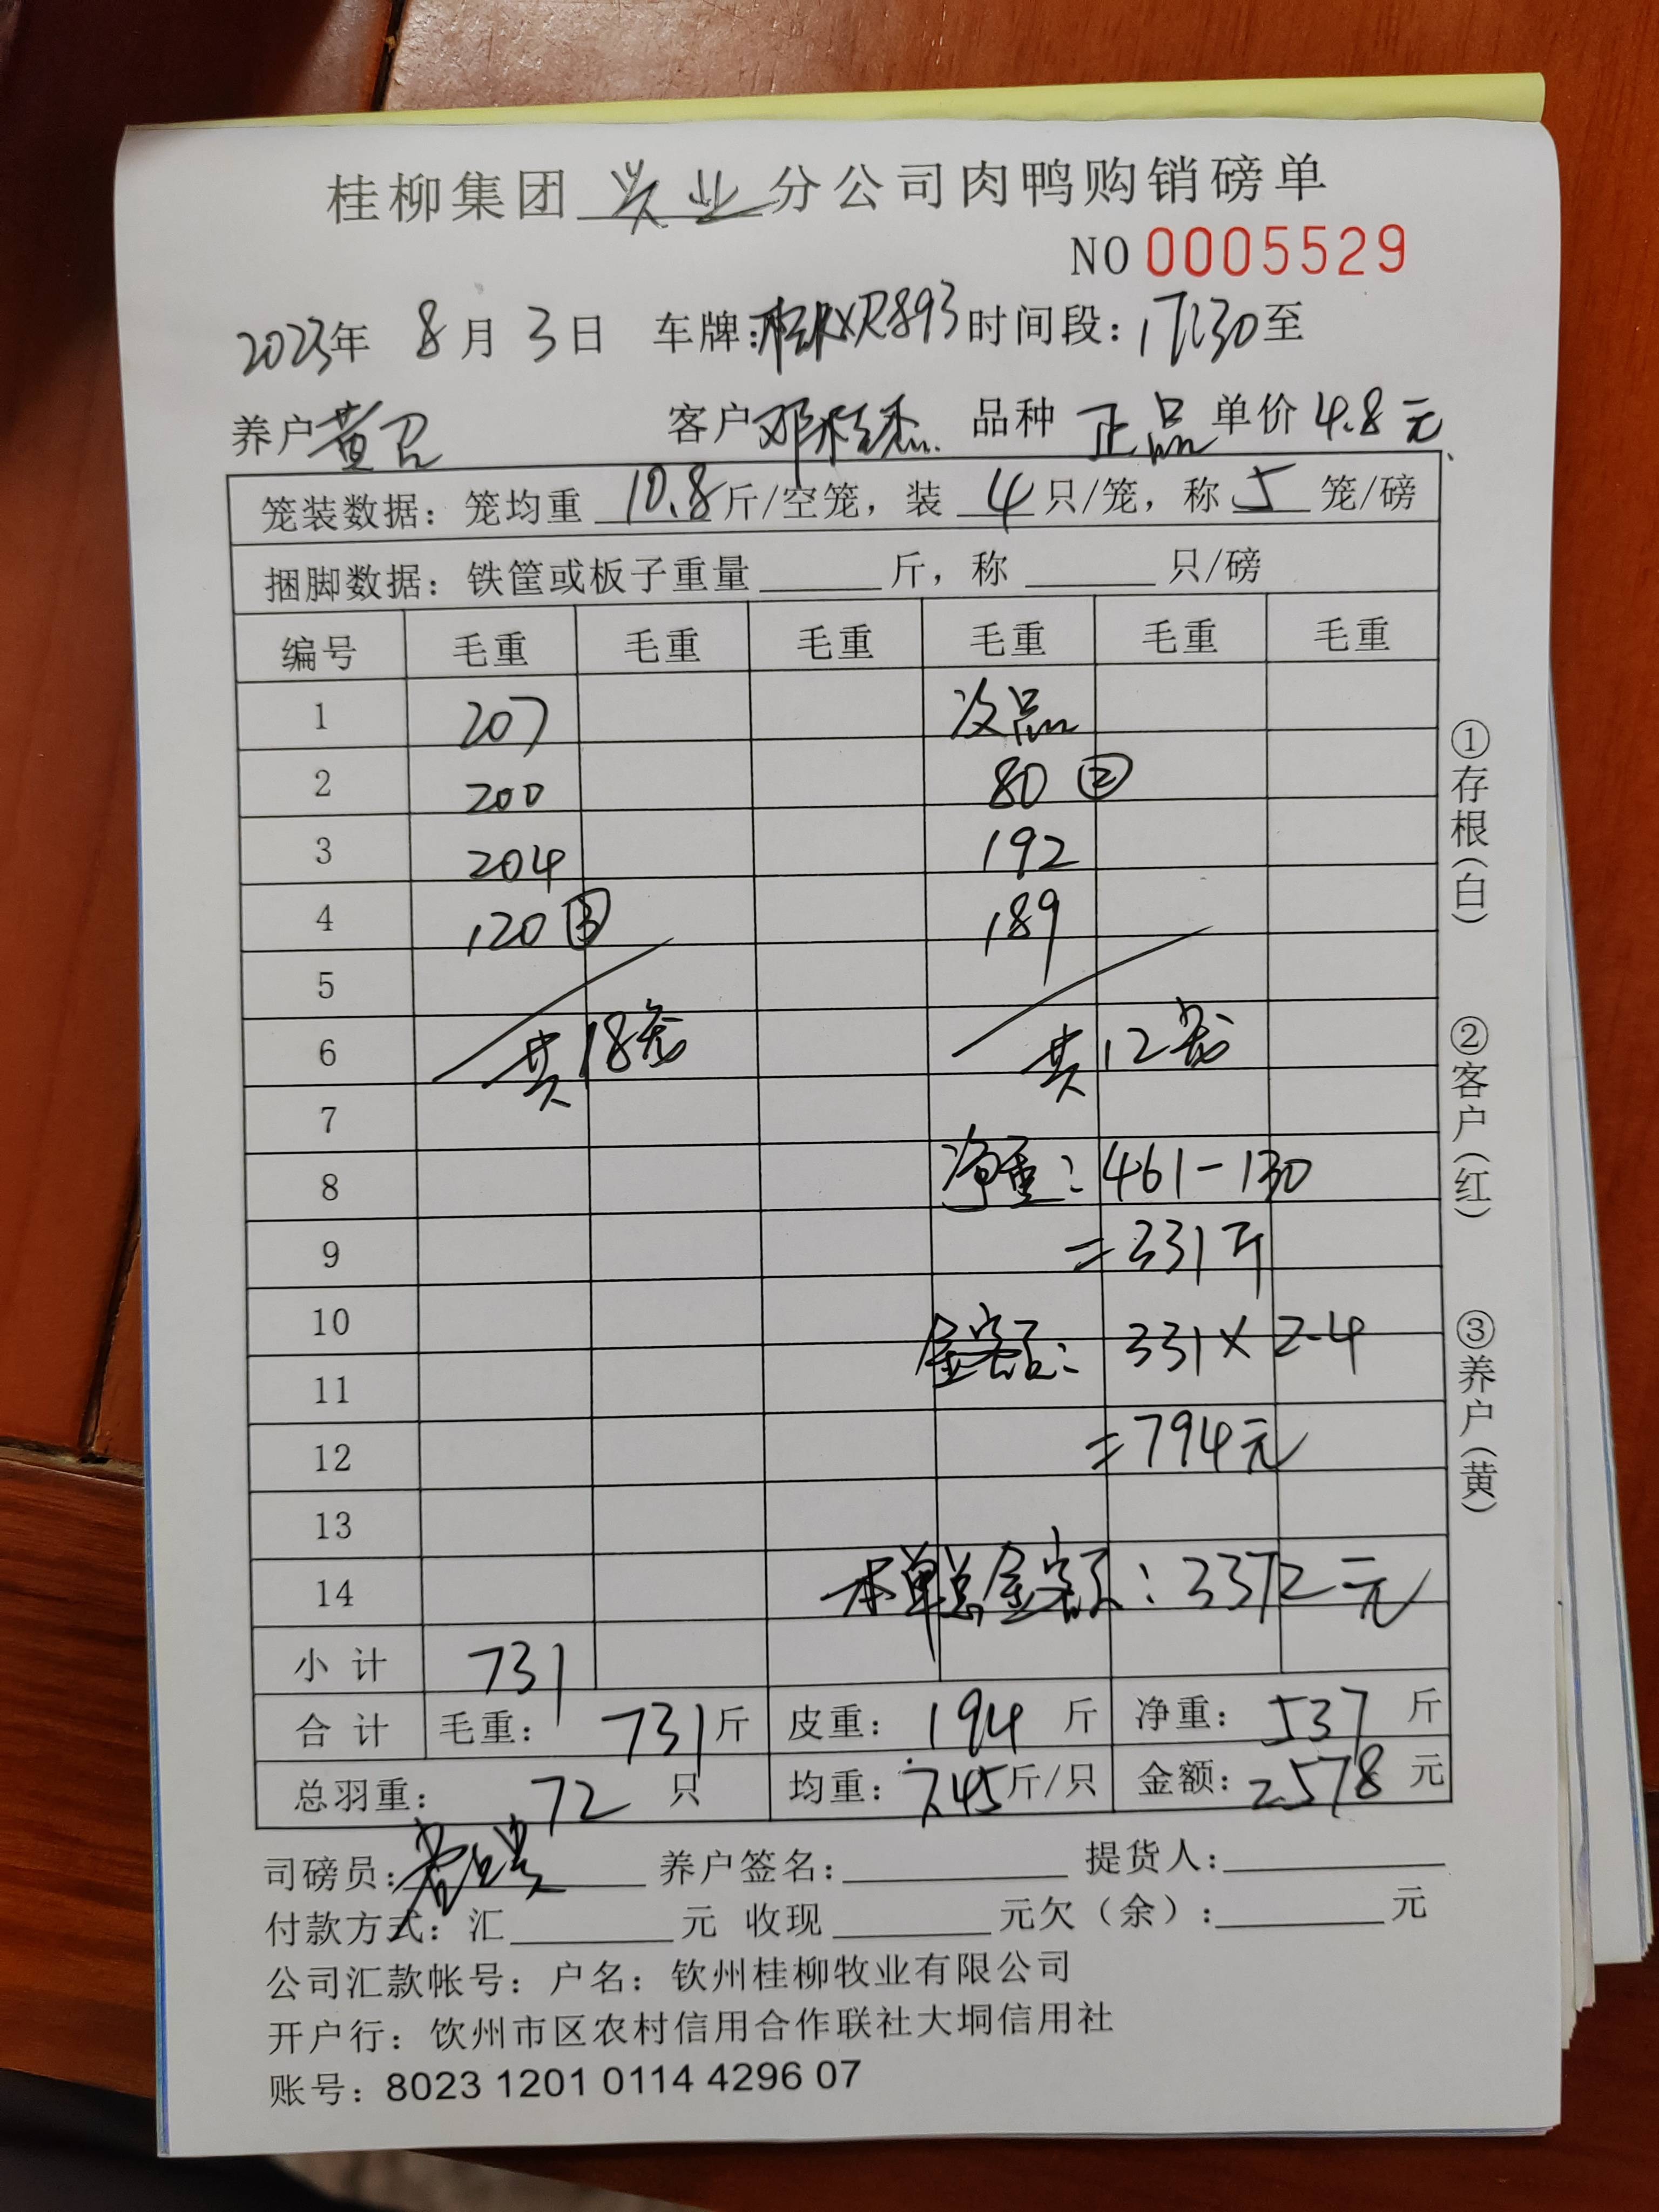 桂柳集团 兴业 分公司肉鸭购销磅单
NO 0005529
2023年 8月 3日 车牌:桂RXR893 时间段:17:30至
养户 黄召 客户 邓桂杰 品种 正品 单价 4.8元
笼装数据:笼均重 10.8 斤/空笼,装 4 只/笼,称 5 笼/磅
捆脚数据:铁筐或板子重量______斤,称______只/磅
编号 毛重 毛重 毛重 毛重 毛重 毛重
1 207 次品
2 200 80 ②
3 204 192
4 120 ③ 189
5
6 共18笼 共12笼
7
8 净重:461-130
9 =331斤
10 金额:331×2.4
11
12 =794元
13
14 本单总金额:3372元
小计 731
合计 毛重:731斤 皮重:194斤 净重:537斤
总羽重:72只 均重:7.45斤/只 金额:2578元
司磅员: 养户签名: 提货人:
付款方式:汇______元 收现______元欠(余):______元
公司汇款帐号:户名:钦州桂柳牧业有限公司
开户行:钦州市区农村信用合作联社大垌信用社
账号:8023 1201 0114 4296 07
①存根(白)
②客户(红)
③养户(黄)